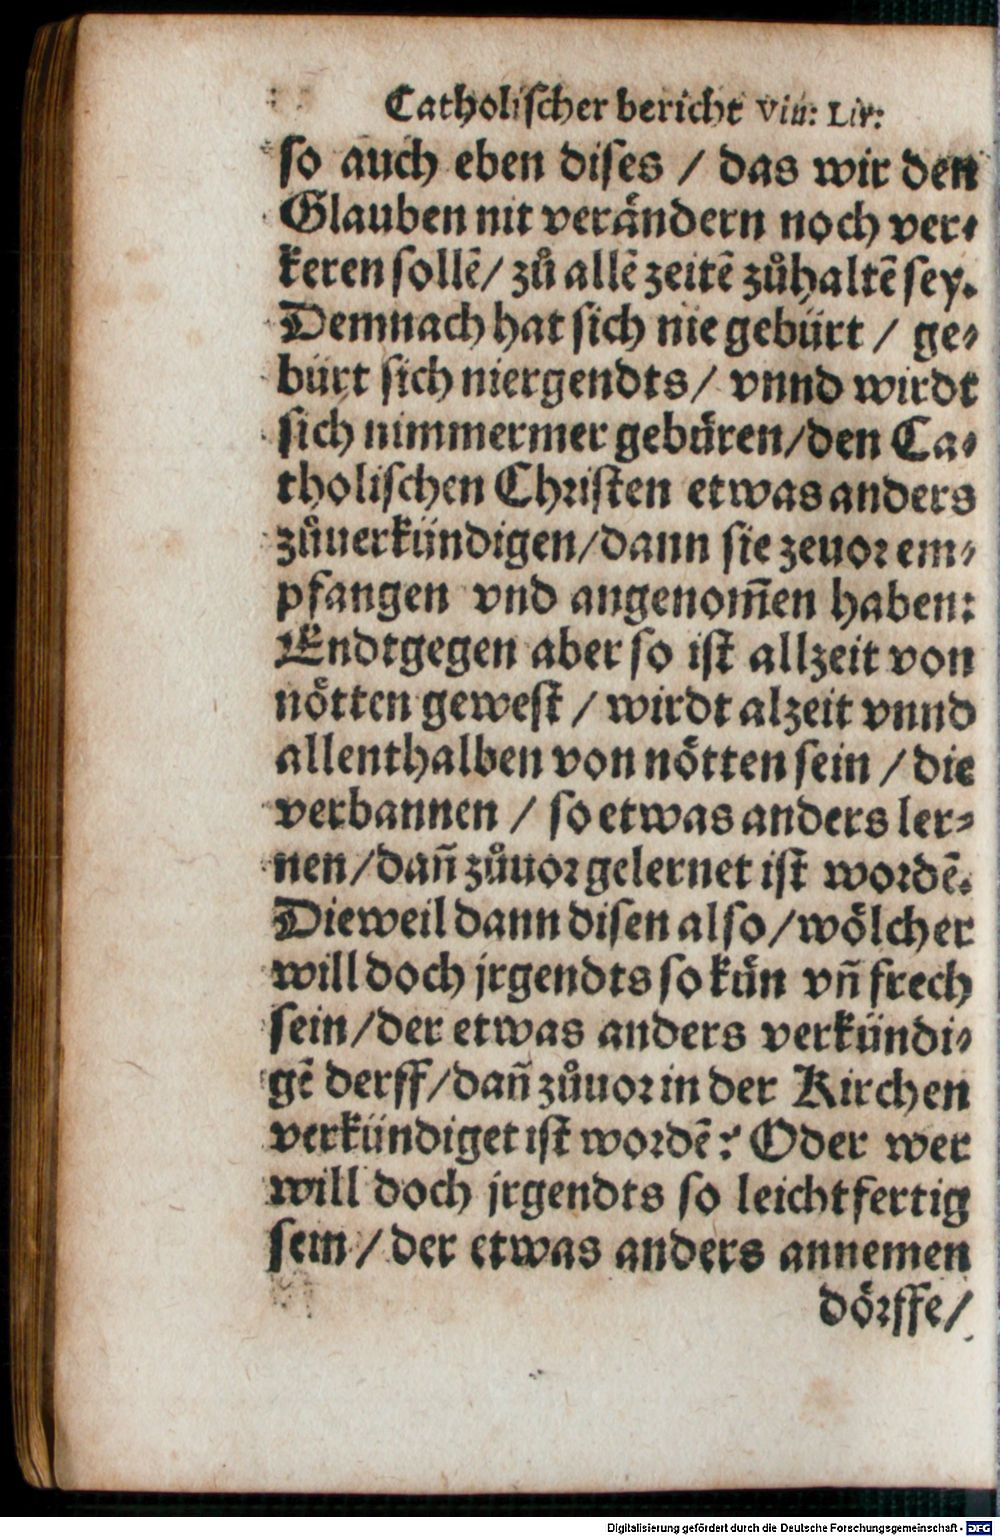 Catholischer bericht Vin: Lir:
so auch eben dises / das wir den
Glauben nit verändern noch ver⸗
keren sollē/ zů allē zeitē zůhaltē sey.
Demnach hat sich nie gebürt / ge⸗
bürt sich niergendts/ vnnd wirdt
sich nimmermer gebüren/den Ca⸗
tholischen Christen etwas anders
zůuerkündigen/dann sie zeuor em⸗
pfangen vnd angenom̄en haben:
Endtgegen aber so ist allzeit von
nötten gewest / wirdt alzeit vnnd
allenthalben von nötten sein / die
verbannen / so etwas anders ler⸗
nen/dañ zůuor gelernet ist wordē.
Dieweil dann disen also/wölcher
will doch jrgendts so kün vñ frech
sein/der etwas anders verkündi⸗
gē derff/dañ zůuor in der Kirchen
verkündiget ist wordē? Oder wer
will doch jrgendts so leichtfertig
sein / der etwas anders annemen
dörffe/
Digitalisierung gefördert durch die Deutsche Forschungsgemeinschaft - DFG